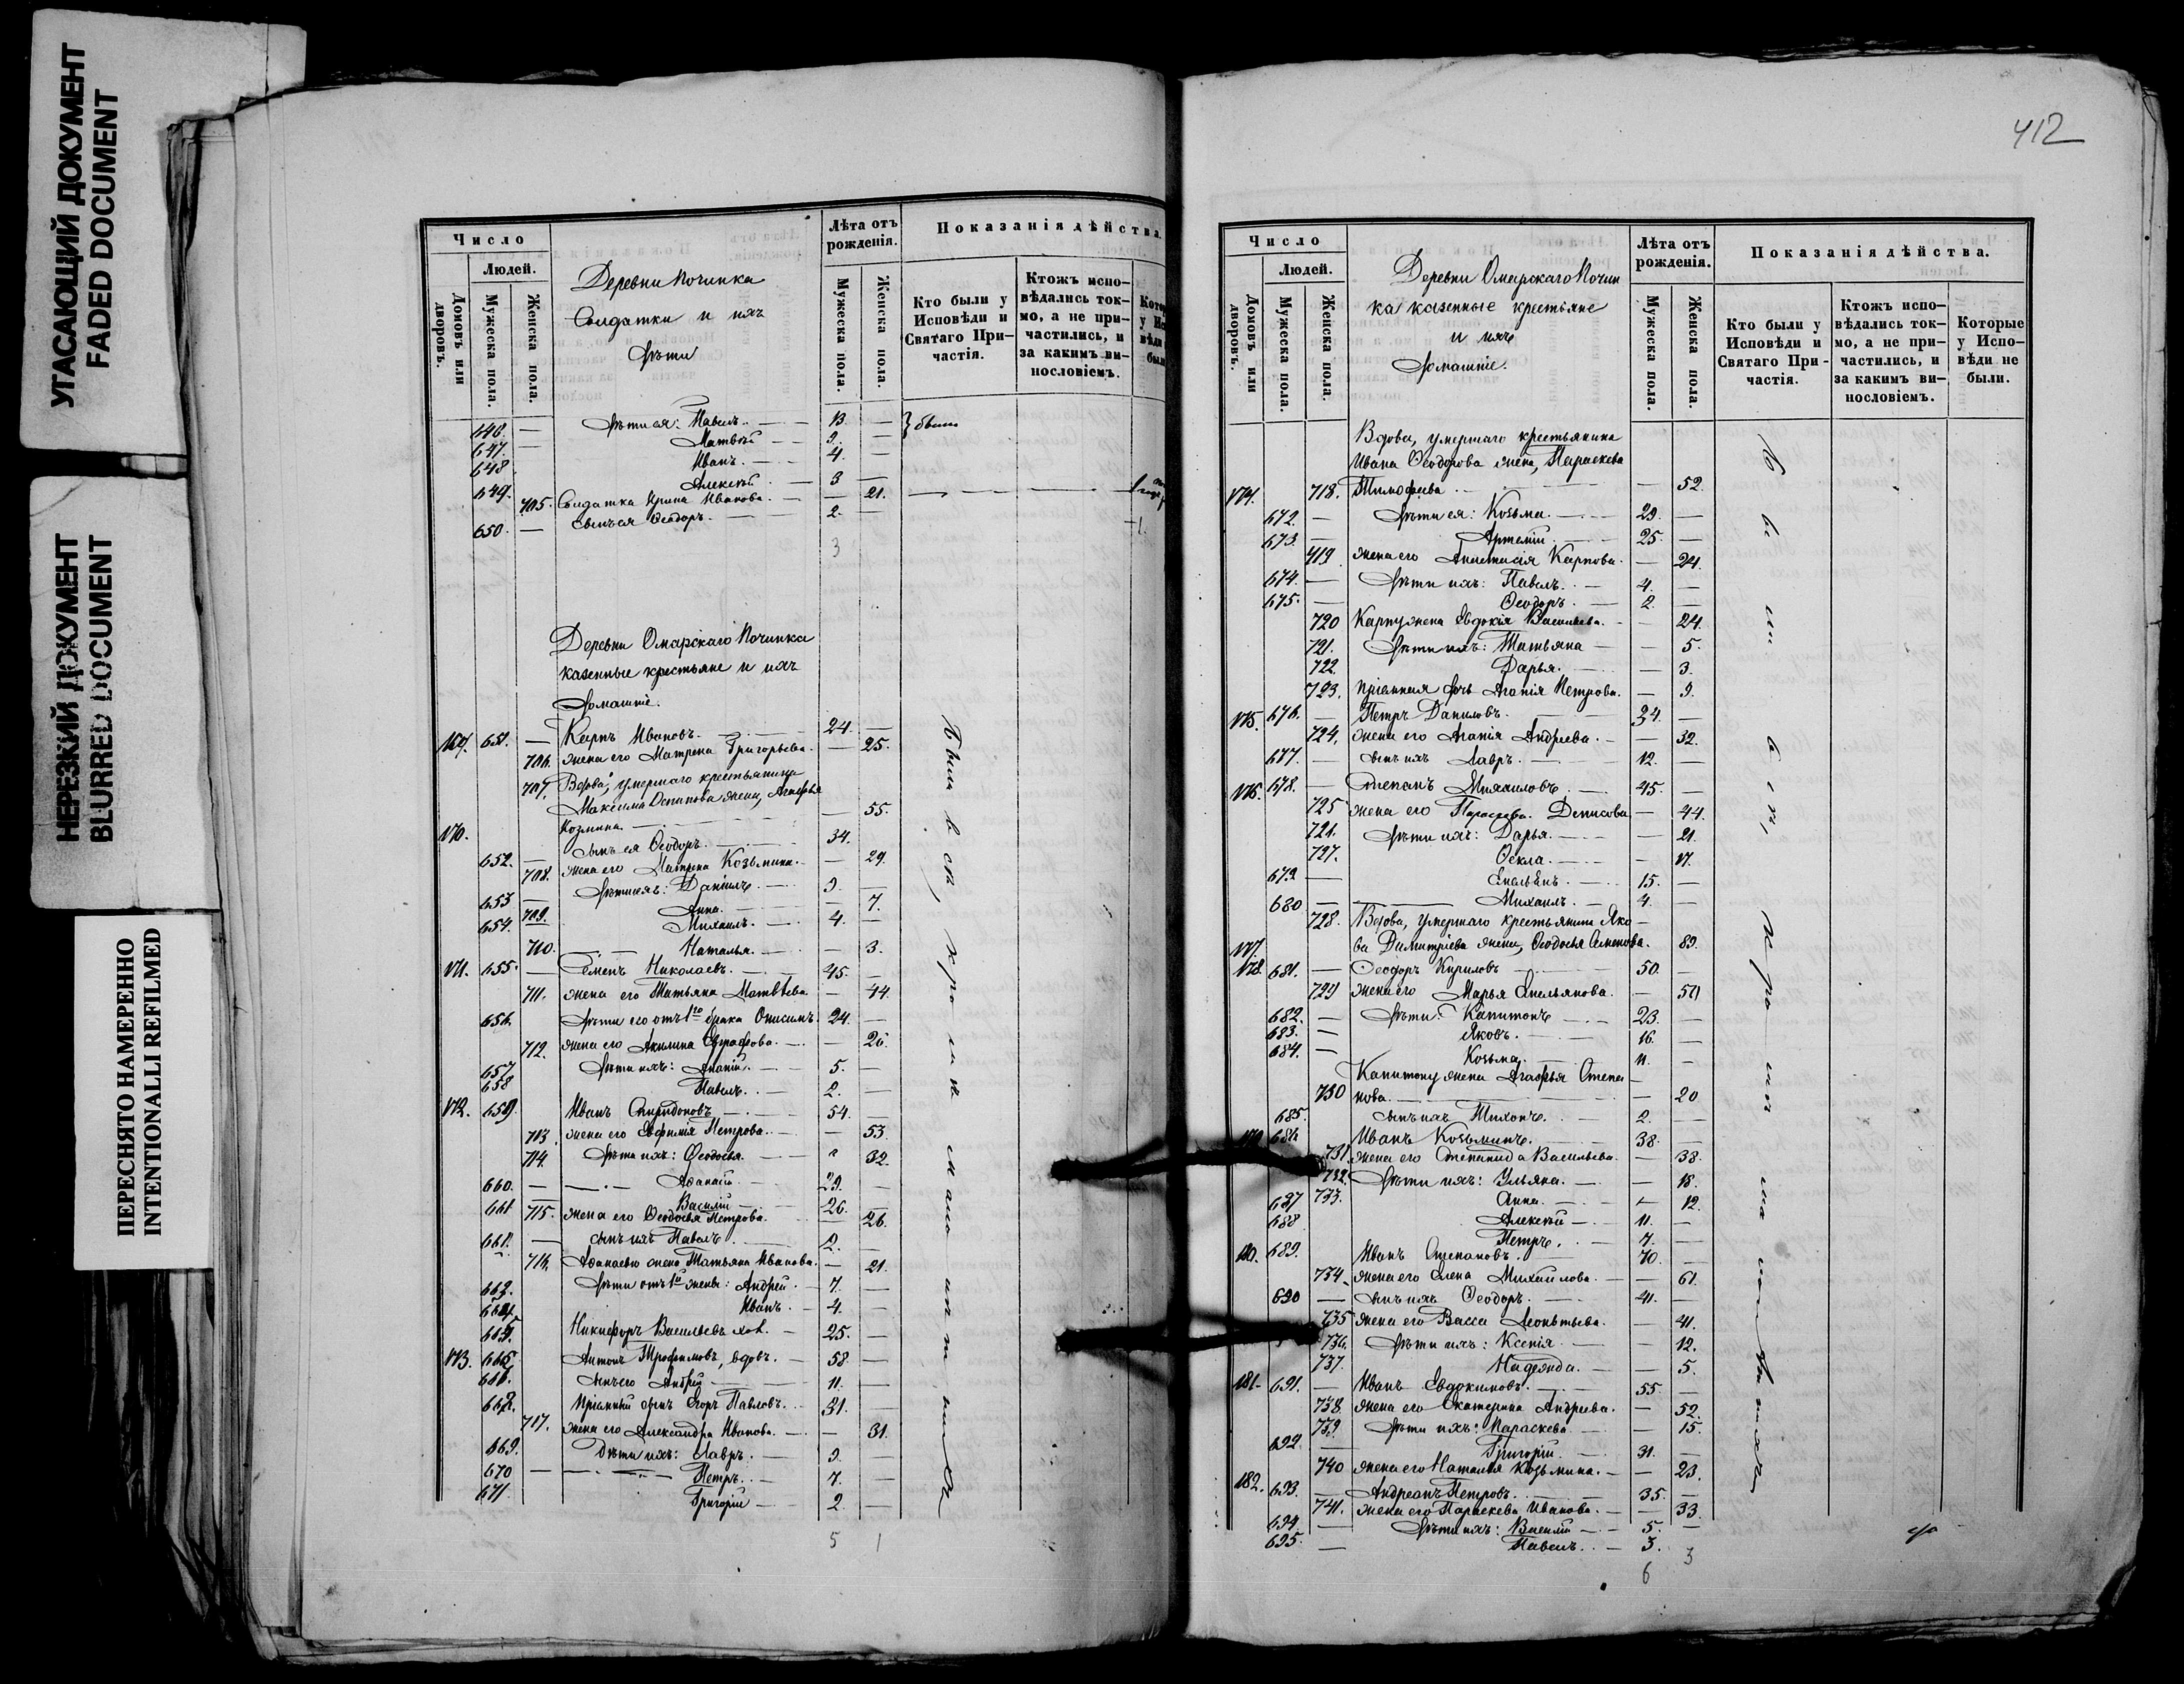 УГАСАЮЩИЙ ДОКУМЕНТ
FADED DOCUMENT
НЕРЕЗКИЙ ДОКУМЕНТ
BLURRED DOCUMENT
ПЕРЕСНЯТО НАМЕРЕННО
INTENTIONALLI REFILMED
Число
Людей.
Домовъ или дворовъ.
Мужеска пола.
Женска пола.
Деревни Починка
Солдатки и ихъ
дѣти
Лѣта отъ рожденія.
Мужеска пола.
Женска пола.
Показанія дѣйства.
Кто были у Исповѣди и Святаго При-частія.
Ктожъ испо-вѣдались ток-мо, а не при-частились, и за какимъ ви-нословіемъ.
646. — дѣти ея: Павелъ. — 13 — были
647. — Матвѣй — 9. —
648. Иванъ. — 4. —
649. Алексѣй — 3 —
705. Солдатка Ирина Иванова. — 21.
650. — сынъ ея Ѳеодоръ. — 2. —
3
Деревни Омарскаго Починка
казенные крестьяне и ихъ
домашніе.
169. 651. — Карпъ Ивановъ. — 24. —
706. жена его Матрена Григорьева. — 25.
707. Вдова, умершаго крестьянина
Максима Осипова жена, Агафья
170. Козмина. — 55.
652. — сынъ ея Ѳеодоръ. — 34.
708. жена его Матрена Козьмина. — 29.
653 — дѣти ихъ: Даніилъ. — 9. —
709. Анна. — 7.
654. — Михаилъ. — 4. —
710. Наталья. — 3.
171. 655. — Семенъ Николаевъ. — 45. —
711. жена его Татьяна Матвѣева. — 44.
656. дѣти его отъ 1го брака Онисимъ. 24. —
712. жена его Акилина Евграфова. — 26.
657 дѣти ихъ: Ананій. — 5. —
658 Павелъ. — 2. —
172. 659. Иванъ Спиридоновъ — 54. —
713. жена его Евфимія Петрова. — 53.
714. дѣти ихъ: Ѳеодосья. — 32.
660. — Аѳанасій — 29. —
661 Василій — 26. —
715. жена его Ѳеодосья Петрова. — 26.
— сынъ ихъ Павелъ — 2. —
716. Аѳанасью жена Татьяна Иванова. — 21.
663. дѣти отъ 1й жены: Андрей — 7. —
664. Иванъ. — 4. —
Никифоръ Васильевъ хол. — 25. —
173. Антонъ Трофимовъ, вдовъ. — 58 —
сынъ его Андрей — 11. —
Пріемный сынъ Егоръ Павловъ. — 31. —
717. жена его Александра Иванова. — 31.
669. Дѣти ихъ: Лавръ. — 9. —
670 — Петръ. — 7. —
671. Григорій — 2. —
5 1
412
Число
Людей.
Домовъ или дворовъ.
Мужеска пола.
Женска пола.
Деревни Омарскаго Почин
ка казенные крестьяне
и ихъ
домашніе.
Лѣта отъ рожденія.
Мужеска пола.
Женска пола.
Показанія дѣйства.
Кто были у Исповѣди и Святаго При-частія.
Ктожъ испо-вѣдались ток-мо, а не при-частились, и за какимъ ви-нословіемъ.
Которые у Испо-вѣди не были.
Вдова, умершаго крестьянина
Ивана Ѳеодорова жена, Параскева
174. 718. Тимофеева — 52.
672. — дѣти ея: Козьма. — 29. —
673. — Артемій — 25. —
719 жена его Анастасія Карпова. — 24.
674. — дѣти ихъ: Павелъ. — 4. —
675. — Ѳеодоръ. — 2. —
720 Карпу жена Евдокія Васильева. — 24.
721. дѣти ихъ: Татьяна — 5.
722. Дарья. — 3.
723. пріемная дочь Агапія Петрова. — 9.
175. 676. — Петръ Даниловъ. — 34. —
724. жена его Агапія Андреева. — 32.
677. — сынъ ихъ Лавръ. — 12. —
176. 678. — Степанъ Михаиловъ. — 45. —
725 жена его Параскева Денисова — 44.
дѣти ихъ: Дарья. — 21.
727. Ѳекла. — 17.
679 — Емельянъ. — 15. —
680 — Михаилъ. — 4. —
728. Вдова, умершаго крестьянина Яко-
177. ва Димитріева жена, Ѳеодосья Семенова. 89.
178. 681. — Ѳеодоръ Кириловъ — 50. —
729 жена его Марья Емельянова. —
682. — дѣти: Капитонъ — 23. —
683. — Яковъ. — 16. —
684. — Козьма. — 11. —
Капитону жена Агафья Степа-
730 нова. — 20
685. сынъ ихъ Тихонъ. — 2. —
179 686 Иванъ Козьминъ. — 38. —
731. жена его Степанида Васильева. — 38.
732. дѣти ихъ: Ульяна. — 18.
733. Анна. — 12.
687 Алексѣй — 11. —
688 Петръ. — 7. —
180. 689. Иванъ Степановъ. 70. —
734. жена его Елена Михайлова. — 61.
690 — сынъ ихъ Ѳеодоръ. — 41. —
735 жена его Васса Леонтьева. — 41.
736. дѣти ихъ: Ксенія. — 12.
737. Надежда. — 5.
181. 691. — Иванъ Евдокимовъ. — 55. —
738. жена его Екатерина Андреева. — 52.
739. дѣти ихъ: Параскева — 15.
692. — Григорій. — 31. —
740 жена его Наталья Козьмина. — 23.
182. 693. — Андреанъ Петровъ. — 35. —
741. жена его Параскева Иванова. — 33.
694. — дѣти ихъ: Василій — 5. —
695. — Павелъ. — 3. —
6 3